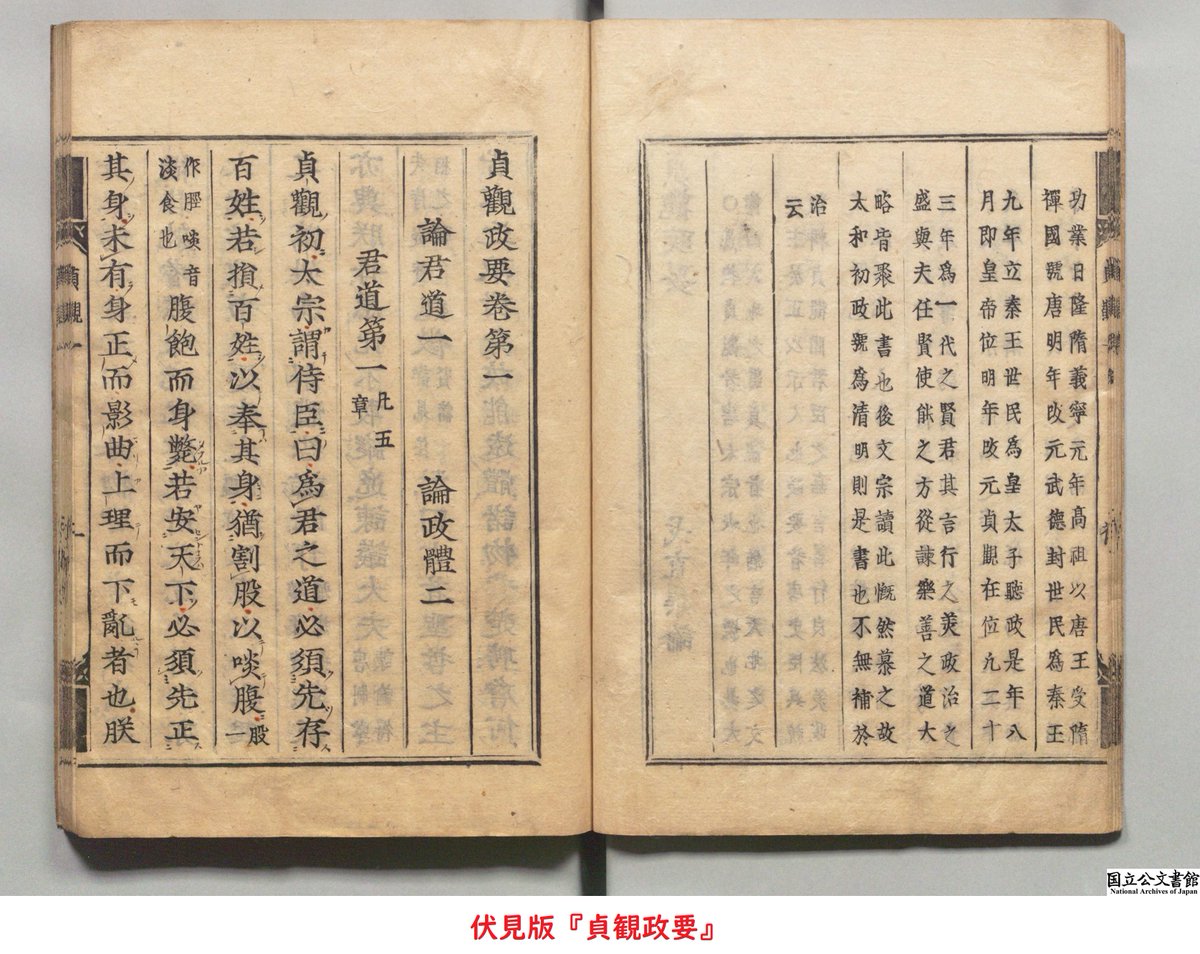 功業日隆隋義寧元年高祖以唐王受隋
禪國號唐明年改元武德封世民爲秦王
九年立秦王世民爲皇太子聽政是年八
月即皇帝位明年改元貞觀在位凡二十
三年爲一代之賢君其言行之美政治之
盛與夫任賢使能之方從諫樂善之道大
略皆聚此書也後文宗讀此慨然慕之故
太和初政號爲清明則是書也不無補於
治
云
貞觀政要卷第一
論君道一 論政體二
君道第一 凡五章
貞觀初太宗謂侍臣曰爲君之道必須先存
百姓若損百姓以奉其身猶割股以啖腹 股一
作脛啖音淡食也 腹飽而身斃若安天下必須先正
其身未有身正而影曲上理而下亂者也朕
国立公文書館
National Archives of Japan
伏見版『貞観政要』